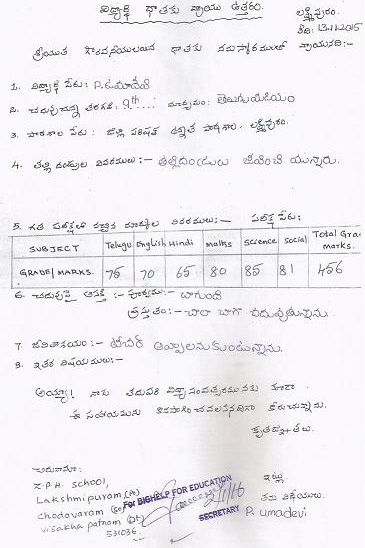 విద్యార్థి దాతకు వ్రాయు ఉత్తరం.
లక్ష్మీపురం.
తేది: 13-11-2015
శ్రీయుత గౌరవనీయులయిన దాతకు నమస్కారములతో వ్రాయునది:-
1. విద్యార్థి పేరు: P.ఉమాదేవి
2. చదువుచున్న తరగతి: 9th..... మాధ్యమం: తెలుగుమీడియం
3. పాఠశాల పేరు: జిల్లా పరిషత్ ఉన్నత పాఠశాల. లక్ష్మీపురం.
4. తల్లి దండ్రుల వివరములు:- తల్లిదండ్రులు జీవించి యున్నారు.
5. గత పరీక్షలో వచ్చిన మార్కుల వివరములు;- పరీక్ష పేరు:
SUBJECT Telugu English Hindi maths science social Total Gra marks.
GRADE/MARKS. 75 70 65 80 85 81 456
6. చదువుపై ఆసక్తి :- పూర్వము:- బాగుంది
ప్రస్తుతం:- చాలా బాగా చదువుతున్నాను.
7. జీవితాశయం:- టీచర్ అవ్వాలనుకుంటున్నాను.
8. ఇతర విషయములు:-
అయ్యా! నాకు తదుపరి విద్యాసంవత్సరమునకు కూడా
ఈ సహాయమును కొనసాగించవలసినదిగా కోరుచున్నాను.
కృతజ్ఞతలు.
చిరునామా:
Z.P.H. School,
Lakshmipuram (Po)
chodavaram
visakha patnam (Dt)
531036.
For BIGHELP FOR EDUCATION
2/1/16
SECRETARY
ఇట్లు
తమ విధేయులు.
P. umadevi